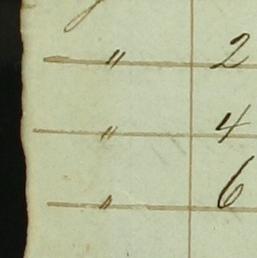 " 2
" 4
" 6